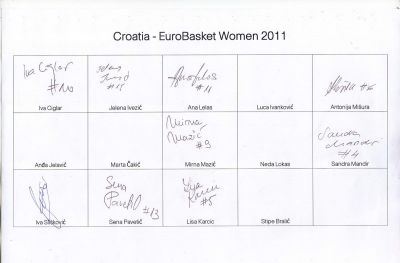 Croatia - EuroBasket Women 2011
Iva Ciglar
#10
#15
#11
Iva Ciglar
Jelena Ivezić
Ana Lelas
Luca Ivanković
Antonija Mišura
Mirna
Mazić
#9
Sandra
Mandir
#4
Anđa Jelavić
Marta Čakić
Mirna Mazić
Neda Lokas
Sandra Mandir
Sena
Pavetić
#13
#5
Iva Slišković
Sena Pavetić
Lisa Karcic
Stipe Bralić